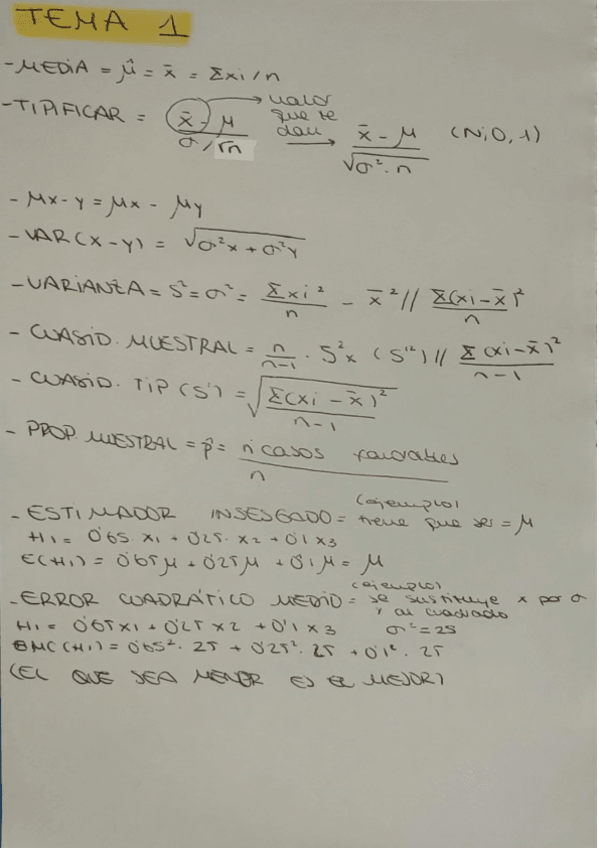 TEMA 1
- MEDIA = μ̂ = x̄ = Σxi/n
- TIPIFICAR = (x̄ - μ)/(σ/√n) → valor que te dan → (x̄ - μ)/√(σ²·n) (N;0,1)
- μx-y = μx - μy
- VAR(X-Y) = √(σ²x + σ²y)
- VARIANZA = S² = σ² = Σxi²/n - x̄² // Σ(xi - x̄)²/n
- CUASID. MUESTRAL = n/(n-1) · S²x (S'²) // Σ(xi - x̄)²/(n-1)
- CUASID. TIP (S') = √(Σ(xi - x̄)²/(n-1))
- PROP. MUESTRAL = p̂ = n casos favorables / n
(ejemplo)
- ESTIMADOR INSESGADO = tiene que ser = μ
H1 = 0'65 · X1 + 0'25 · X2 + 0'1 X3
E(H1) = 0'65μ + 0'25μ + 0'1μ = μ
(ejemplo)
- ERROR CUADRÁTICO MEDIO = se sustituye x por σ
y al cuadrado
H1 = 0'65X1 + 0'25 X2 + 0'1 X3 σ² = 25
EMC(H1) = 0'65² · 25 + 0'25² · 25 + 0'1² · 25
(EL QUE SEA MENOR ES EL MEJOR)